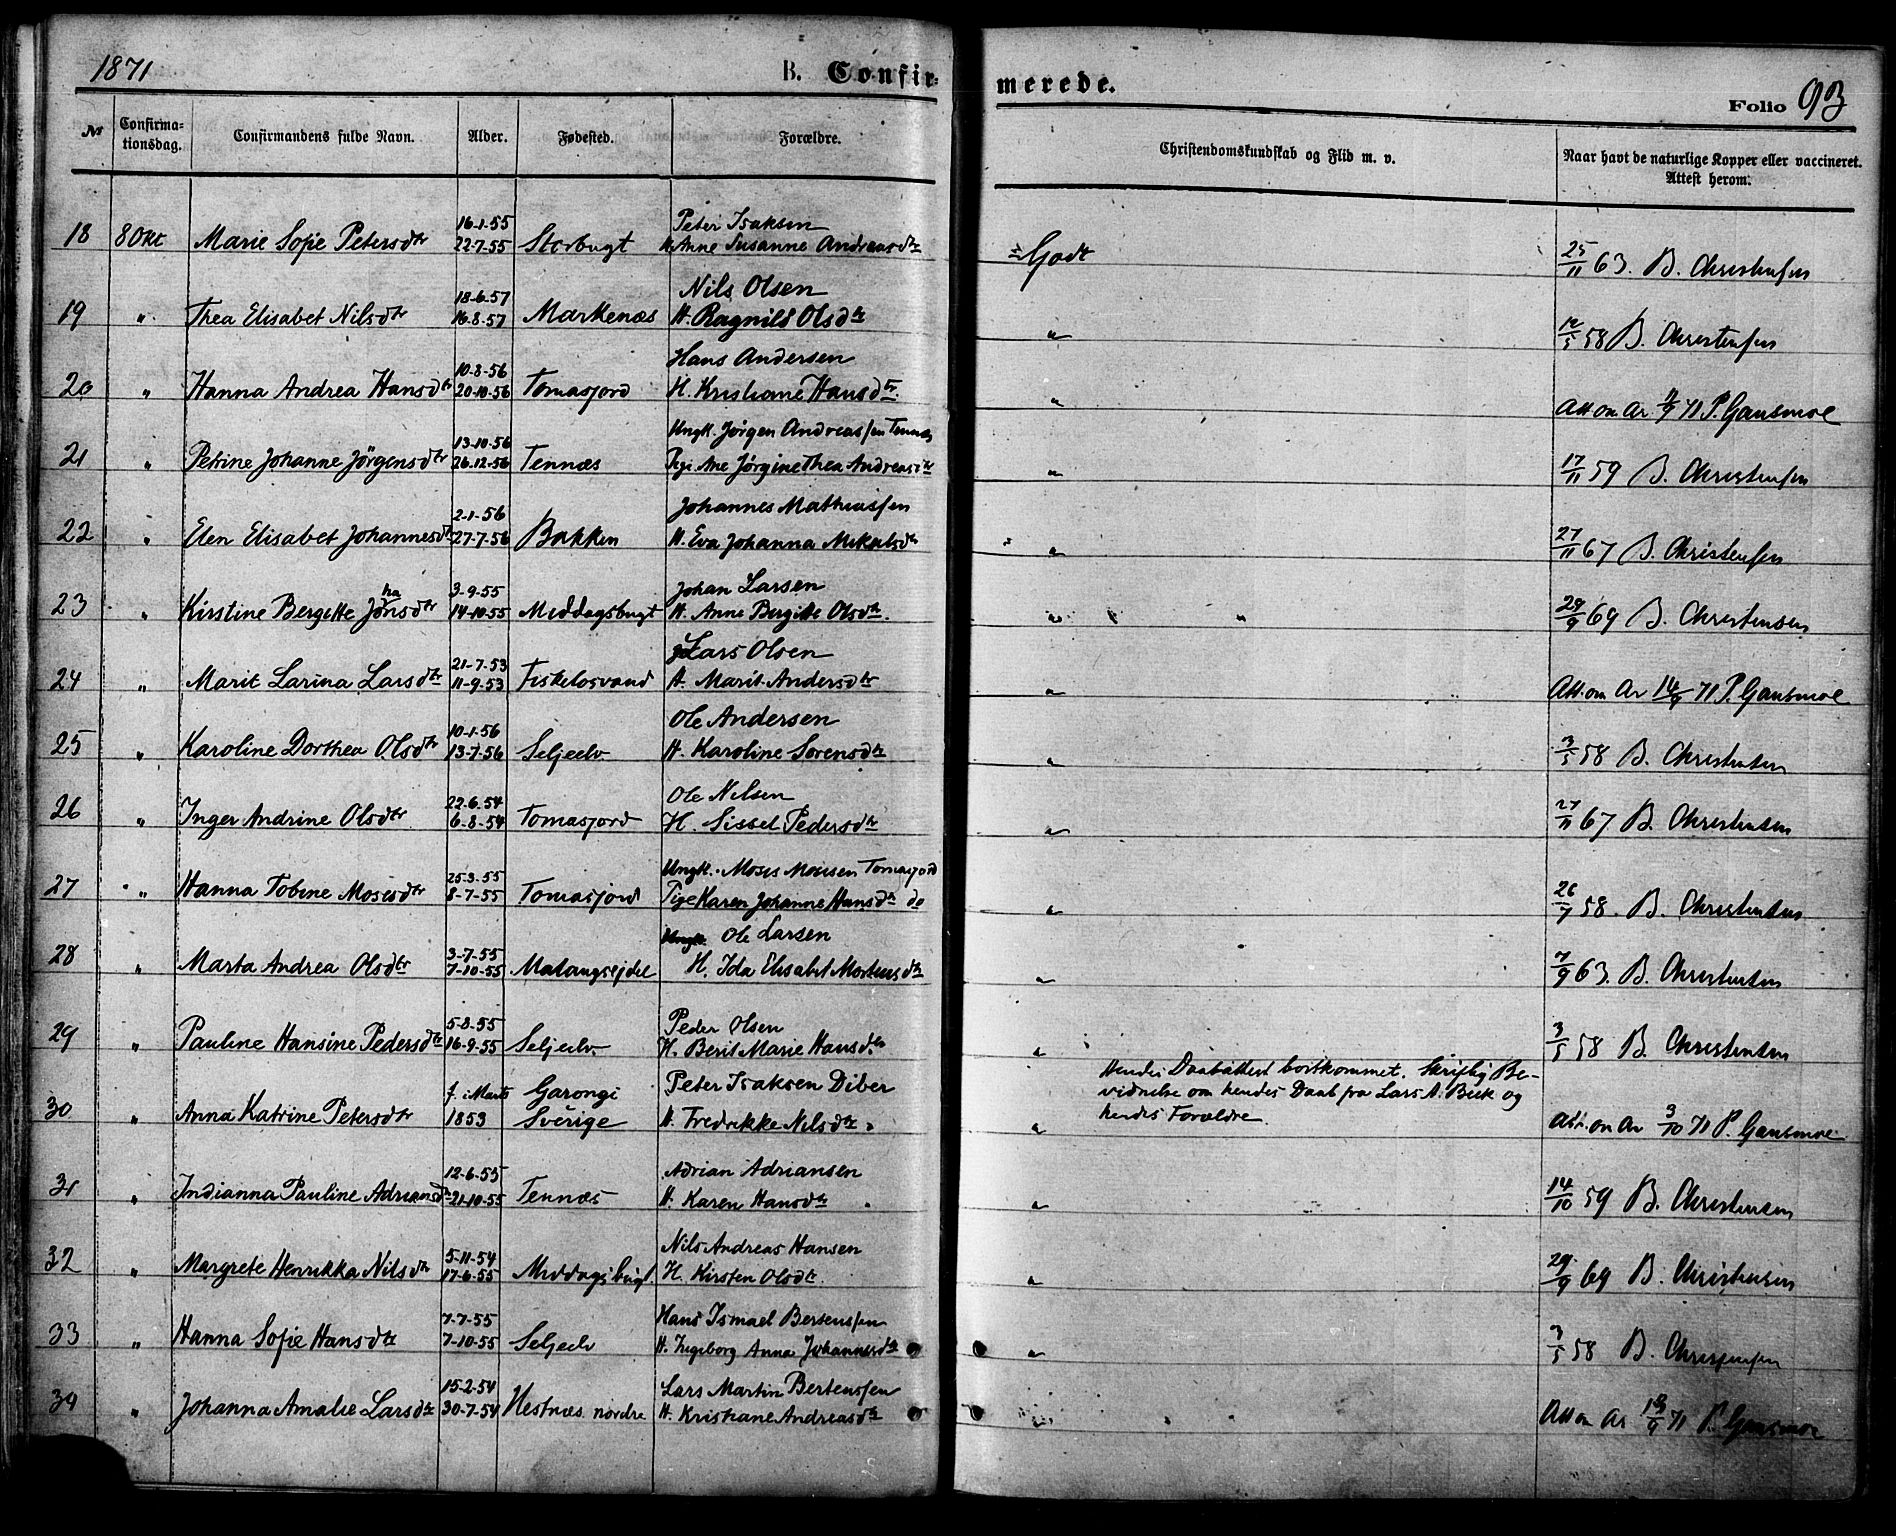 1871
B. Confirmerede.
Folio 93
№ Confirmationsdag. Confirmandens fulde Navn. Alder. Fødested. Forældre. Christendomskundskab og Flid m. v. Naar havt de naturlige Kopper eller vaccineret. Attest herom.
16-1-55 Peter Isaksen
18 8 Okt Marie Sofie Petersdtr 22-7-55 Storbugt H. Anne Susanne Andreasdtr Godt 25/11 63. B. Christensen
18-6-57 Nils Olsen
19 " Thea Elisabet Nilsdtr 16-8-57 Markenæs H. Ragnild Olsdtr " 12/5 58 B. Christensen
10-8-56 Hans Andersen
20 " Hanna Andrea Hansdtr 20-10-56 Tomasjord H. Kristiane Hansdtr. " Att om Ar 71 P. Gausmoe
13-10-56 Ungk. Jørgen Andreassen Tennæs
21 " Petrine Johanne Jörgensdtr 26-12-56 Tennæs Pige Ane Jørgine Thea Andreasdtr " 17/11 59 B. Christensen
2-1-56 Johannes Mathiassen
22 " Elen Elisabet Johannesdtr 27-7-56 Bakken H. Eva Johanna Mikalsdtr " 27/11 67 B. Christensen
3-9-55 Johan Larsen
23 " Kirstine Bergitte Johansdtr 14-10-55 Middagsbugt H. Anne Bergitte Olsdtr. " " 29/9 69 B. Christensen
21-7-53 Lars Olsen
24 " Marit Larina Larsdtr 11-9-53 Fiskelosvand H. Marit Andersdtr " Att om Ar 14/9 71 P. Gausmoe
10-1-56 Ole Andersen
25 " Karoline Dorthea Olsdtr 13-7-56 Seljeelv. H. Karoline Sorensdtr " 3/5 58 B. Christensen
22-6-54 Ole Nilsen
26 " Inger Andrine Olsdtr 6-8-54 Tomasjord H. Sissel Pedersdtr " 27/11 67 B. Christensen
25-3-55 Ungk. Moses Mosisen Tomasjord
27 " Hanna Tobine Mosisdtr 8-7-55 Tomasjord Pige Karen Johanne Hansdtr do " 26/7 58. B. Christensen
3-7-55 Ole Larsen
28 " Marta Andrea Olsdtr 7-10-55 Malangsejdet H. Ida Elisabet Mortensdtr " 7/9 63. B. Christensen
5-8-55 Peder Olsen
29 " Pauline Hansine Pedersdtr 16-9-55 Seljeelv. H. Berit Marie Hansdtr " 3/5 58 B. Christensen
f. i Marts Garongi Peter Isaksen Diber Hendes Daabattest bortkommet. Skriftlig Be-
vidnelse om hendes Daab fra Lars A. Beck og
30 " Anna Katrine Petersdtr 1853 Sverige H. Fredrikke Nilsdtr " hendes Forældre. Att. om Ar 3/10 71 P. Gausmoe
12-6-55 Adrian Adriansen
31 " Indianna Pauline Adriansdtr 21-10-55 Tennæs H. Karen Hansdtr " 14/10 59 B. Christensen
5-11-54 Nils Andreas Hansen
32 " Margrete Henrikka Nilsdtr 17-6-55 Middagsbugt. H. Kirsten Olsdtr. " 29/9 69 B. Christensen
7-7-55 Hans Ismael Bertensen
33 " Hanna Sofie Hansdtr 7-10-55 Seljeelv H. Ingeborg Anna Johannesdtr " 3/5 58 B. Christensen
15-2-54 Lars Martin Bertenssen
34 " Johanna Amalie Larsdtr 30-7-54 Nestnæs nordre H. Kristiane Andreasdtr " Att om Ar 71 P. Gausmoe